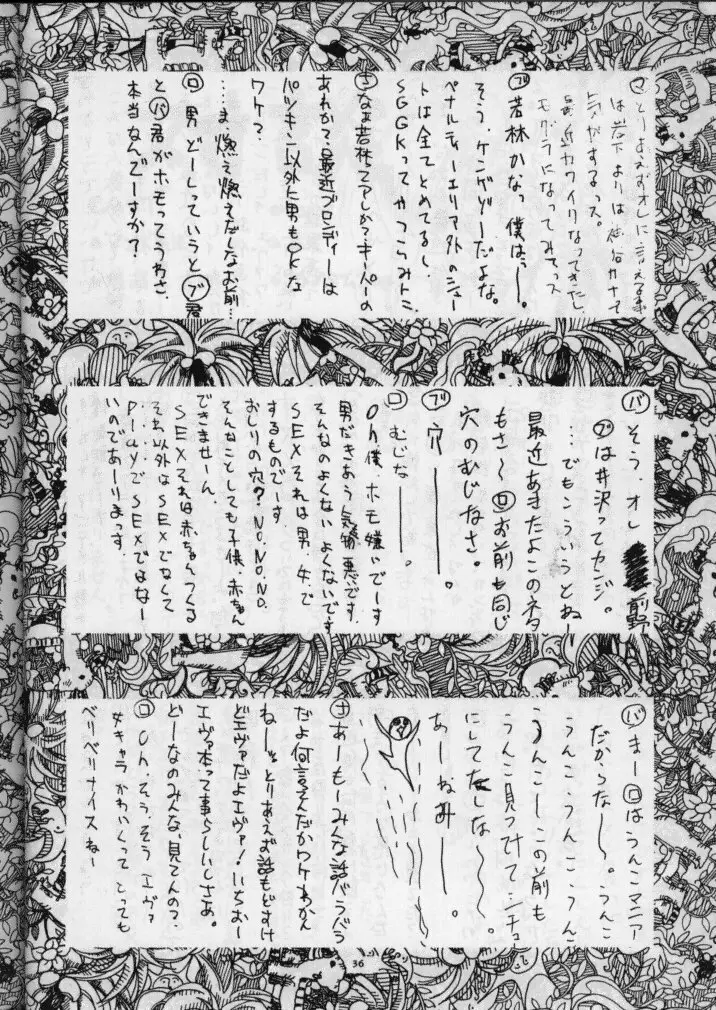 マ とりあえずオレに言える事
は岩下よりは
気がするっス。
最近カワイクなってきたし
モグラになってみてっス
ブ 若林かなっ僕はっー。
そう、ケンゲゾーだよな。
ペナルティーエリア外のシュー
トは全てとめてるし、
SGGKってやつらみトミ
キ なぁ若林ってアレか?キーパーの
あれか?、最近ブロンディーは
パツキン以外に男もOKな
ワケ?
…ま、燃え燃えだしなお前…
ロ 男どーしっていうとブ君
とバ君がホモってうわさ、
本当なんでーすか?
バ そう、オレ 前野
ブは井沢ってカンジ。
…でもこういうとねー
最近あきたよこのネタ
もさ〜ロお前も同じ
穴のむじなさ。
ブ 穴ー。
ロ むじなー。
Oh僕、ホモ嫌いでーす
男だきあう気物悪です。
そんなのよくないよくないです
SEXそれは男、女で
するものでーす。
おしりの穴?NO.NO.NO.
そんなことしても子供、赤ちゃん
できませーん
SEXそれは赤ちゃんつくる
それ以外はSEXでなくして
……PLAYでSEXではなー
いのであーりまーっす。
バ まーロはうんこマニア
だからなー〜。うんこ
うんこ、うんこ、うんこ
うんこーこの前も
うんこ見ってて
にしてたしな〜〜。
あーねみー。
キ あーもーみんな話バラバラ
だよ何言えんだかワケわかん
ねーッとりあえず話もどすけ
どエヴァだよエヴァ!いちおー
エヴァ本って事らしいしさぁ。
どーなのみんな、見てんの?、
ロ Oh、そう、そう エヴァ
女キャラかわいくってとっても
ベリーベリナイスねー
36